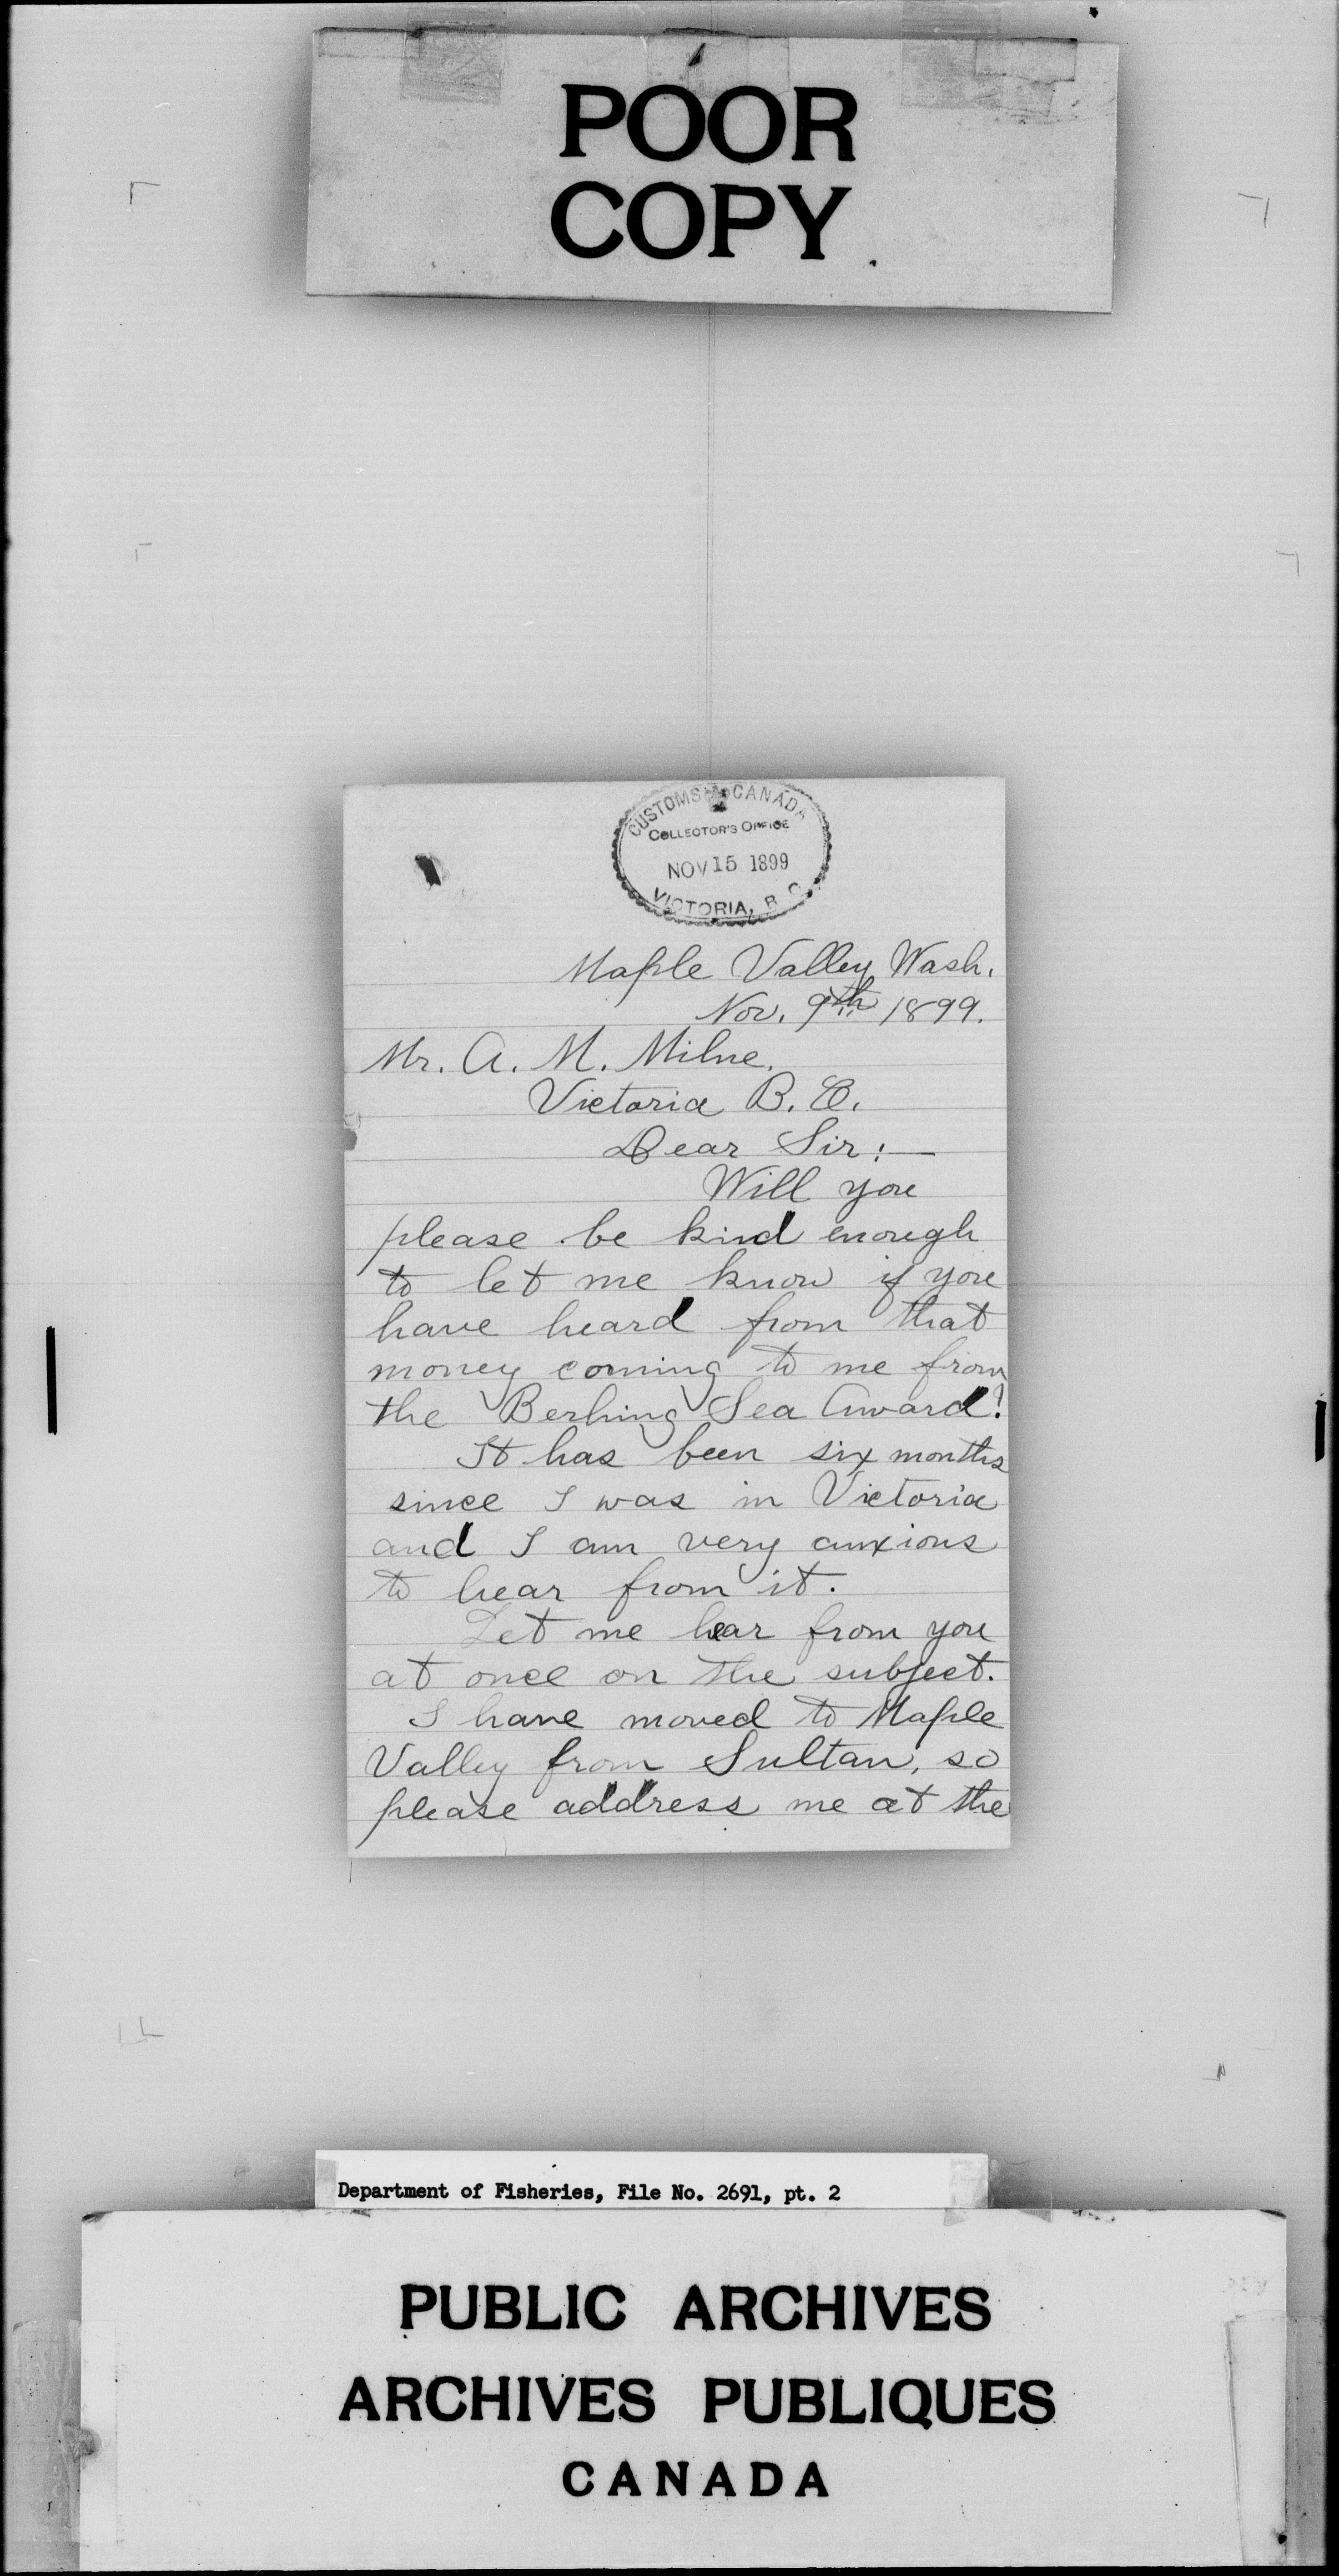 POOR
COPY
CUSTOMS CANADA
COLLECTOR'S OFFICE
NOV 15 1899
VICTORIA, B.C.
Maple Valley Wash.
Nov. 9th 1899.
Mr. A. M. Milne.
Victoria B. C.
Dear Sir:—
Will you
please be kind enough
to let me know if you
have heard from that
money coming to me from
the Berhing Sea Award?
It has been six months
since I was in Victoria
and I am very anxious
to hear from it.
Let me hear from you
at once on the subject.
I have moved to Maple
Valley from Sultan, so
please address me at the
Department of Fisheries, File No. 2691, pt. 2
PUBLIC ARCHIVES
ARCHIVES PUBLIQUES
CANADA